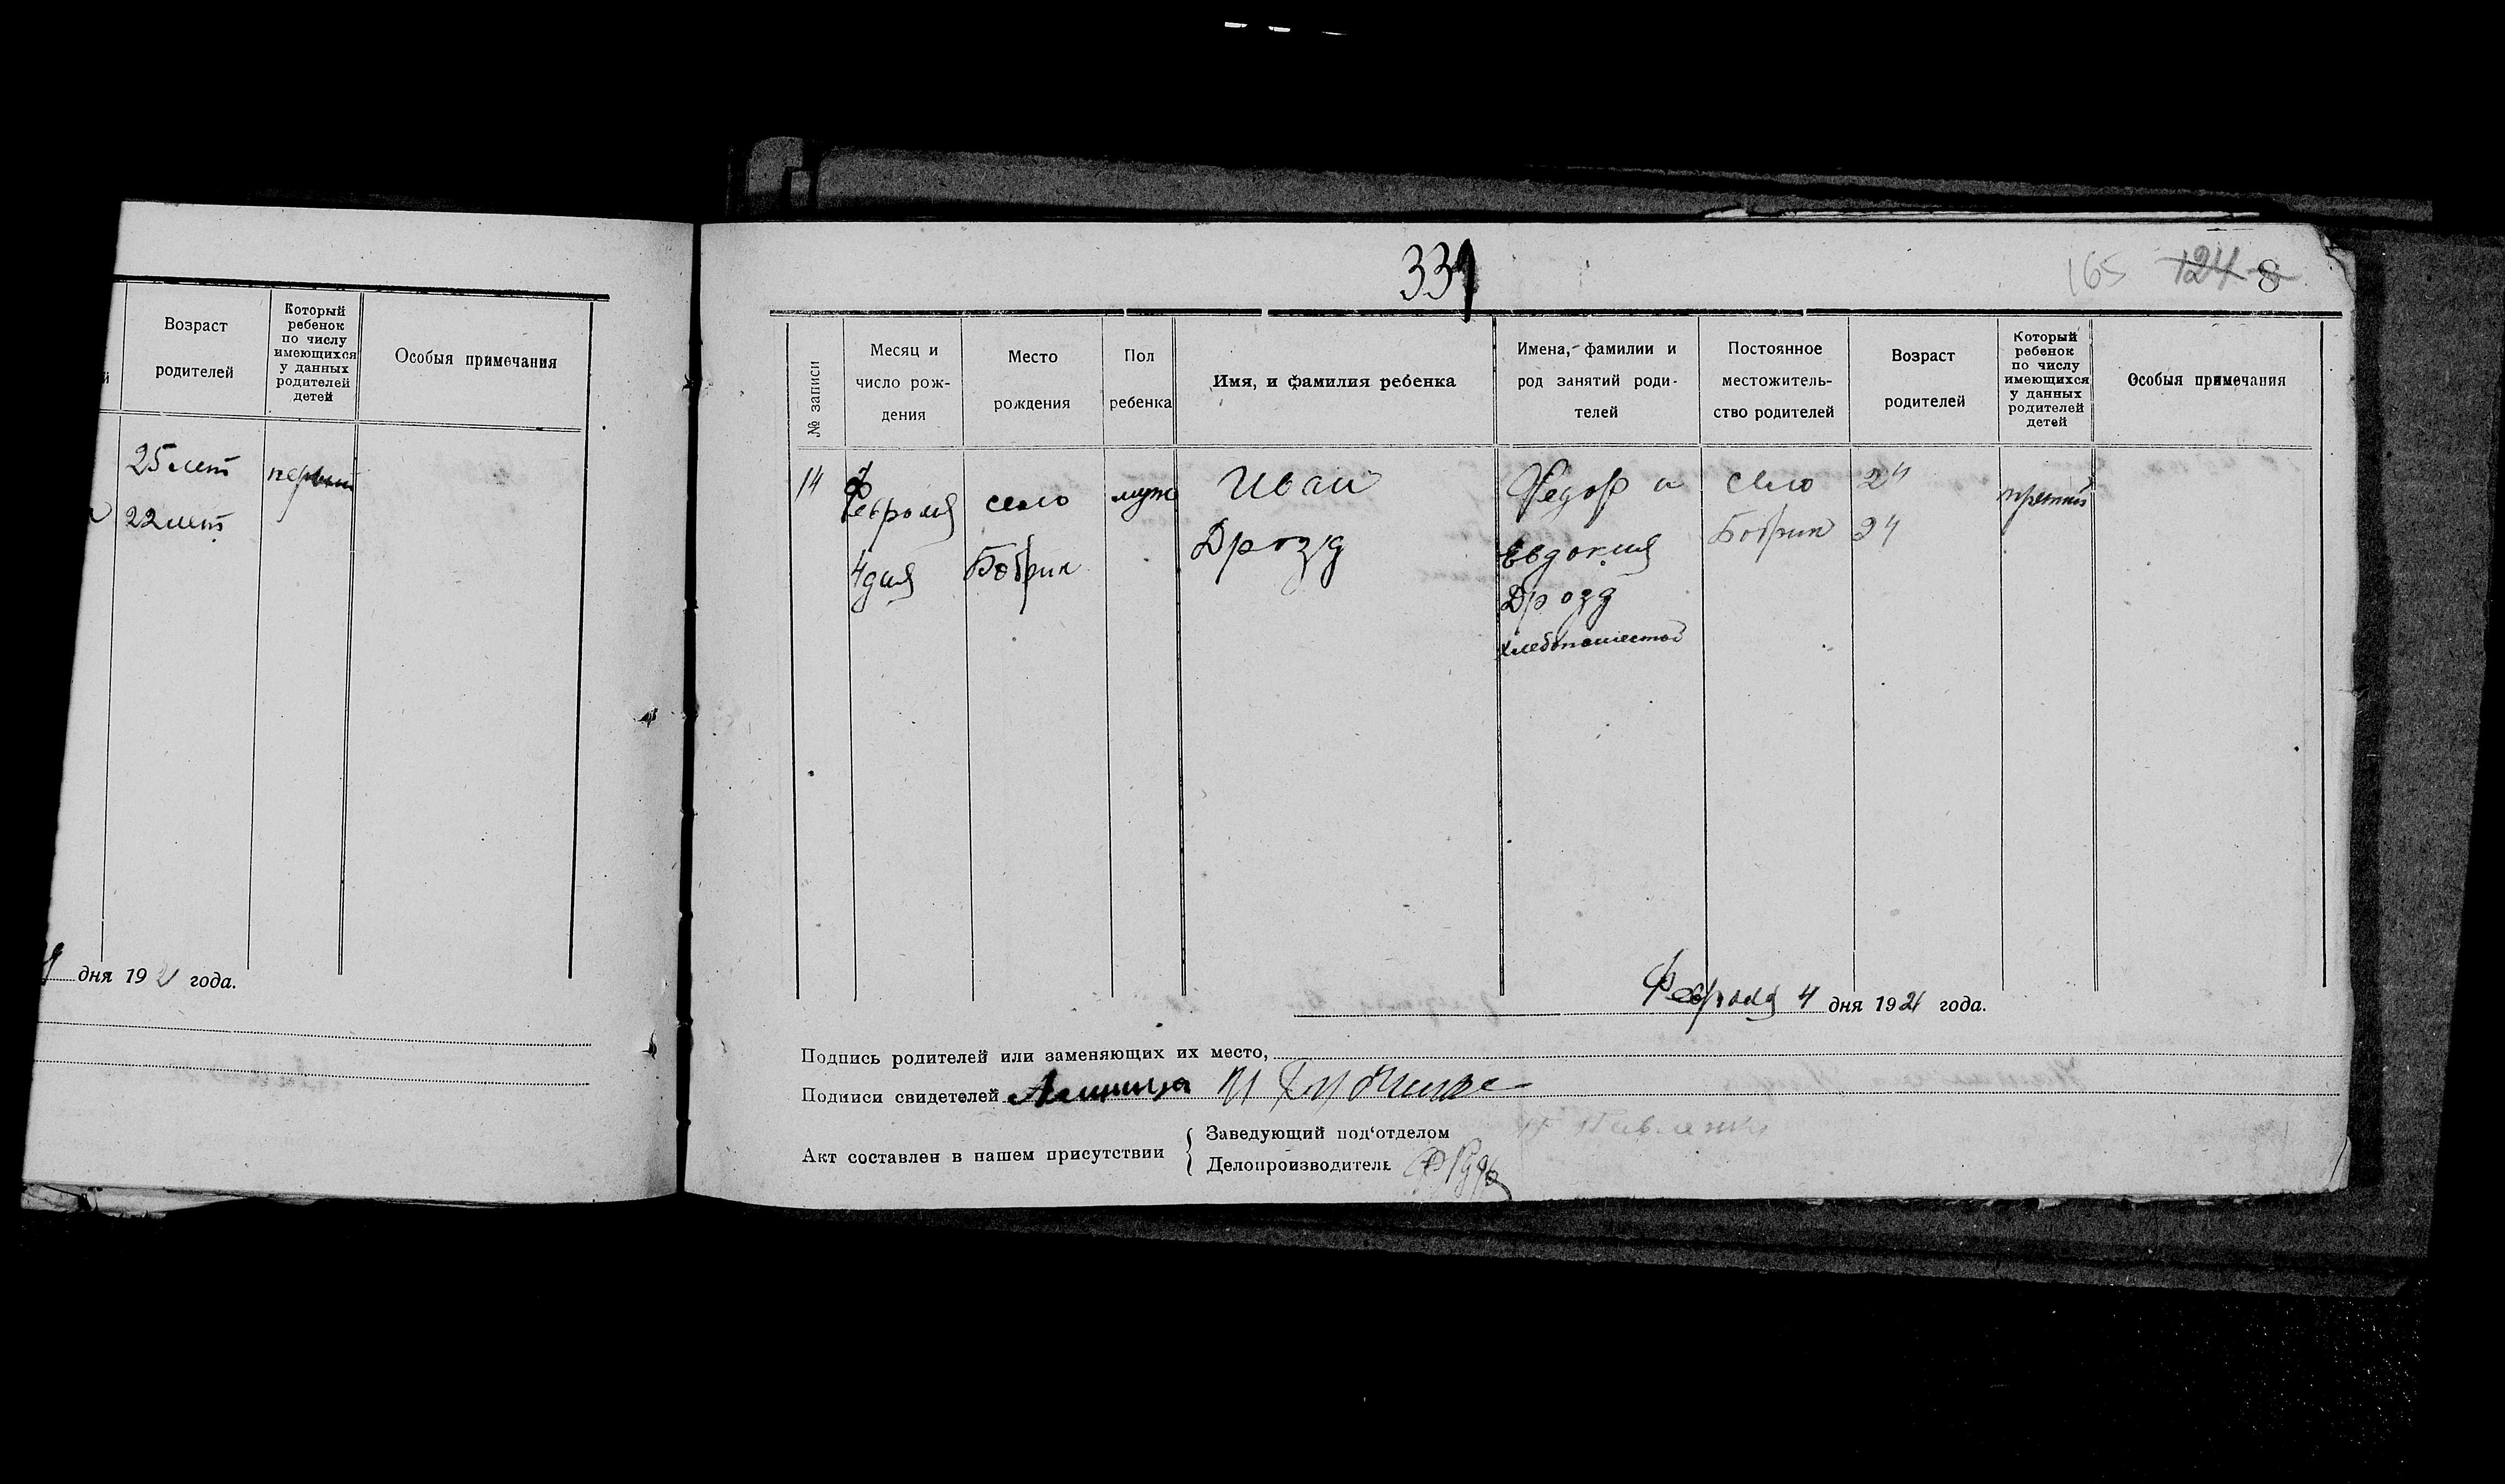 Возраст
родителей
Который
ребенок
по числу
имеющихся
у данных
родителей
детей
Особыя примечания
25 лет
первый
22 лет
дня 192 года.
331
165 124 8
№ записи
Месяц и
число рож-
дения
Место
рождения
Пол
ребенка
Имя, и фамилия ребенка
Имена, фамилии и
род занятий роди-
телей
Постоянное
местожитель-
ство родителей
Возраст
родителей
Который
ребенок
по числу
имеющихся
у данных
родителей
детей
Особыя примечания
14
Февраля
4 дня
село
Бобрик
муж
Иван
Дрозд
Федор и
Евдокия
Дрозд
село
Бобрик
24
24
третий
Февраля 4 дня 1921 года.
Подпись родителей или заменяющих их место,
Подписи свидетелей
Акт составлен в нашем присутствии
Заведующий под'отделом
Делопроизводитель